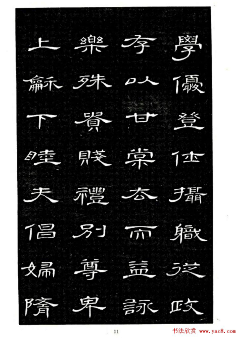 學優登仕攝職從政
存以甘棠去而益詠
樂殊貴賤禮別尊卑
上龢下睦夫倡婦隋
11
书法欣赏 www.yac8.com